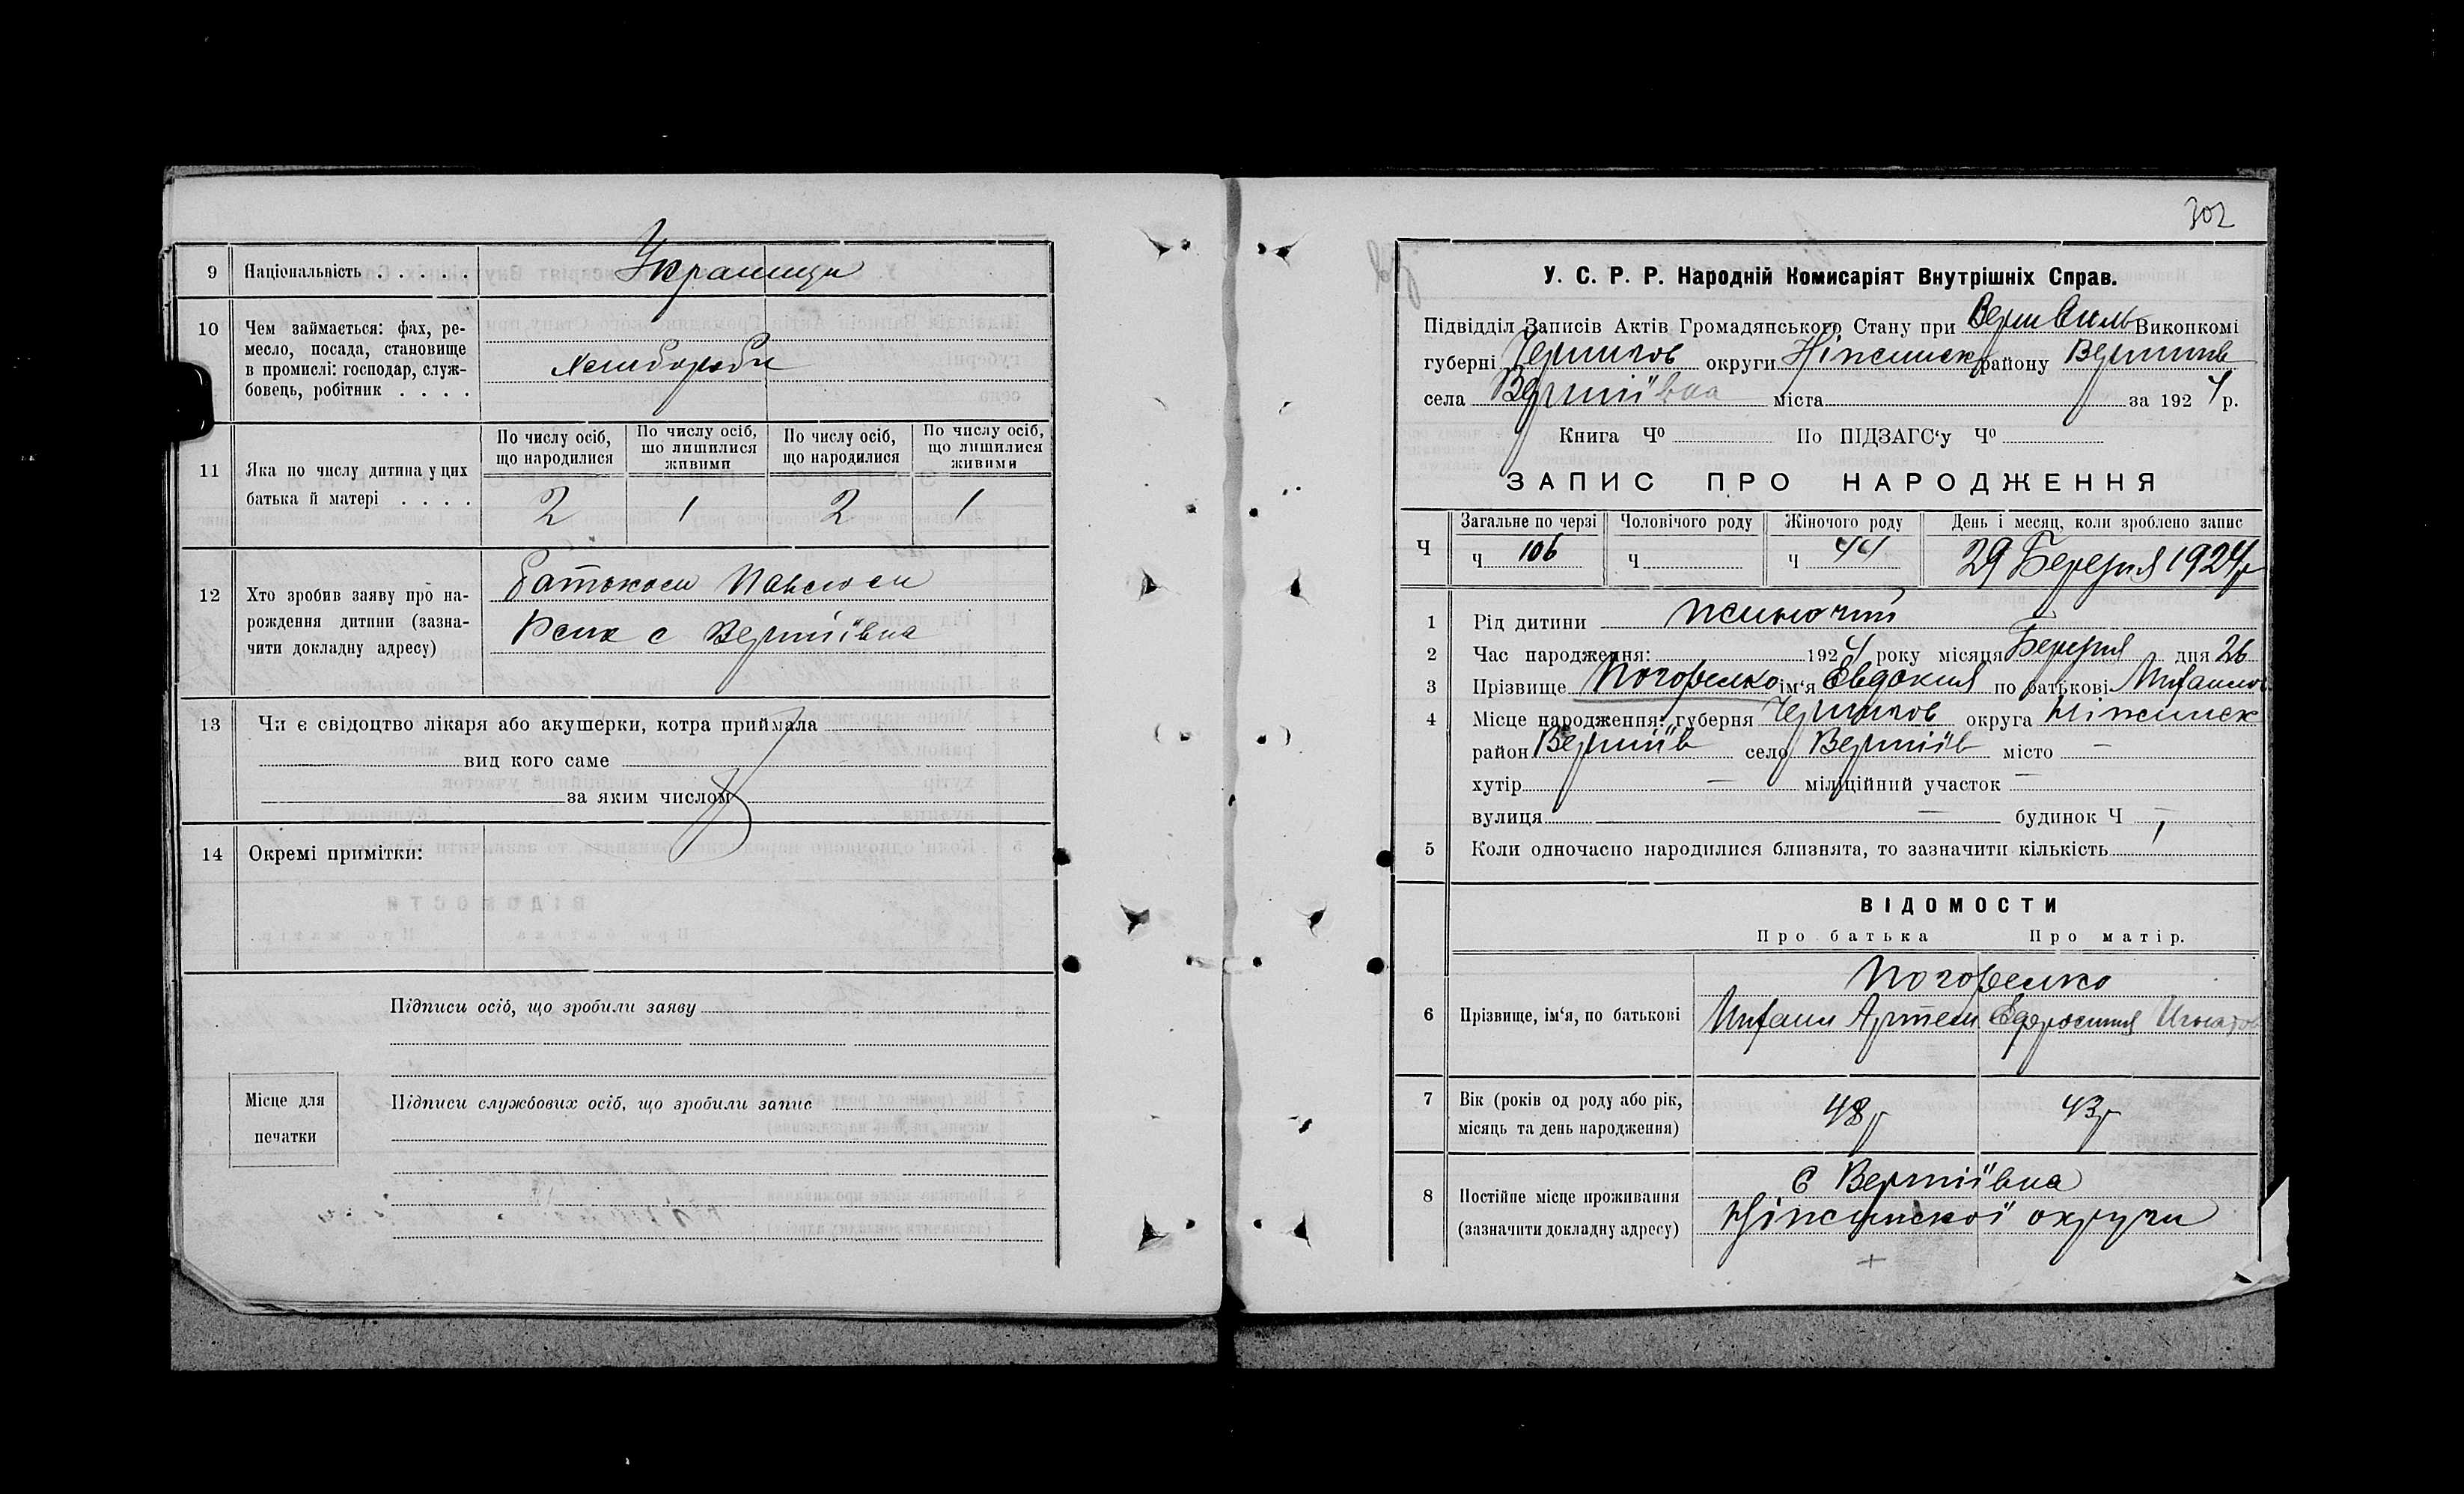 9 Національність . . . . . Украинци
10 Чем займається: фах, ре-
месло, посада, становище
в промислі: господар, служ-
бовець, робітник . . . .
хлибороби
11 Яка по числу дитина у цих
батька й матері . . . .
По числу осіб, що народилися
По числу осіб, що лишилися живими
По числу осіб, що народилися
По числу осіб, що лишилися живими
2 1 2 1
12 Хто зробив заяву про на-
рождення дитини (зазна-
чити докладну адресу)
Батьком
с Вертіївка
13 Чи є свідоцтво лікаря або акушерки, котра приймала
вид кого саме
за яким числом
14 Окремі примітки:
Підписи осіб, що зробили заяву
Місце для
печатки
Підписи службових осіб, що зробили запис
302
У. С. Р. Р. Народній Комисаріят Внутрішніх Справ.
Підвідділ Записів Актів Громадянського Стану при Виконкомі
губерні Чернигов округи Ніжинск району Вертиив
села Вертіївка міста за 1924 р.
Книга Чº По ПІДЗАГС‘у Чº
ЗАПИС ПРО НАРОДЖЕННЯ
Ч
Загальне по черзі Чоловічого роду Жіночого роду День і месяц, коли зроблено запис
Ч 106 Ч Ч 44 29 Березня 1924 р
1 Рід дитини жиночий
2 Час народження: 1924 року місяця Березня дня 26
3 Прізвище Погорелко ім‘я Евдокия по батькові Михаилов
4 Місце народження: губерня Чернигов округа Ніжинск
район Вертиїв село Вертіїв місто —
хутір — міліційний участок —
вулиця — будинок Ч —
5 Коли одночасно народилися близнята, то зазначити кількість 1
ВІДОМОСТИ
Про батька Про матір.
Погорелко
6 Прізвище, ім‘я, по батькові Михаил Артем Ефросиния Игнатов
7 Вік (років од роду або рік,
місяць та день народження)
48 р 43 р
8 Постійне місце проживання
(зазначити докладну адресу)
С Вертіївка
Ніжинскої округи